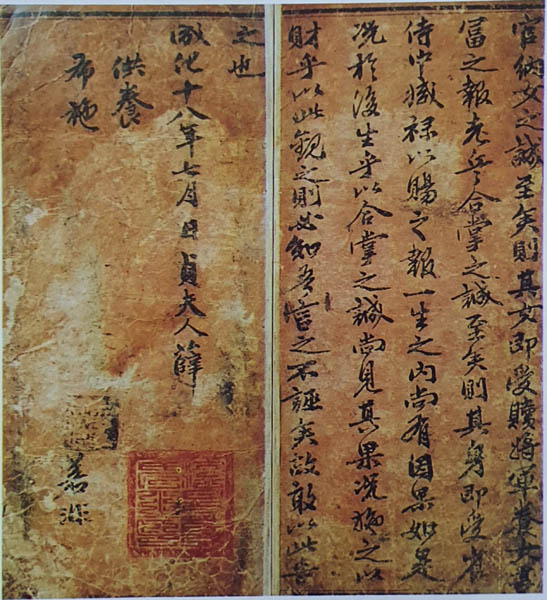 官納女之誠至矣則其女即受贖將軍養女
冨之報老兵合掌之誠至矣則其身即受
侍中職禄以賜之報一生之内尚有因果如是
况於後生乎以合掌之誠尚見其果况施之以
財乎以此觀之則必知吾言之不誣矣故敢以此告
之也
成化十八年七月日貞夫人薛
供養
布施